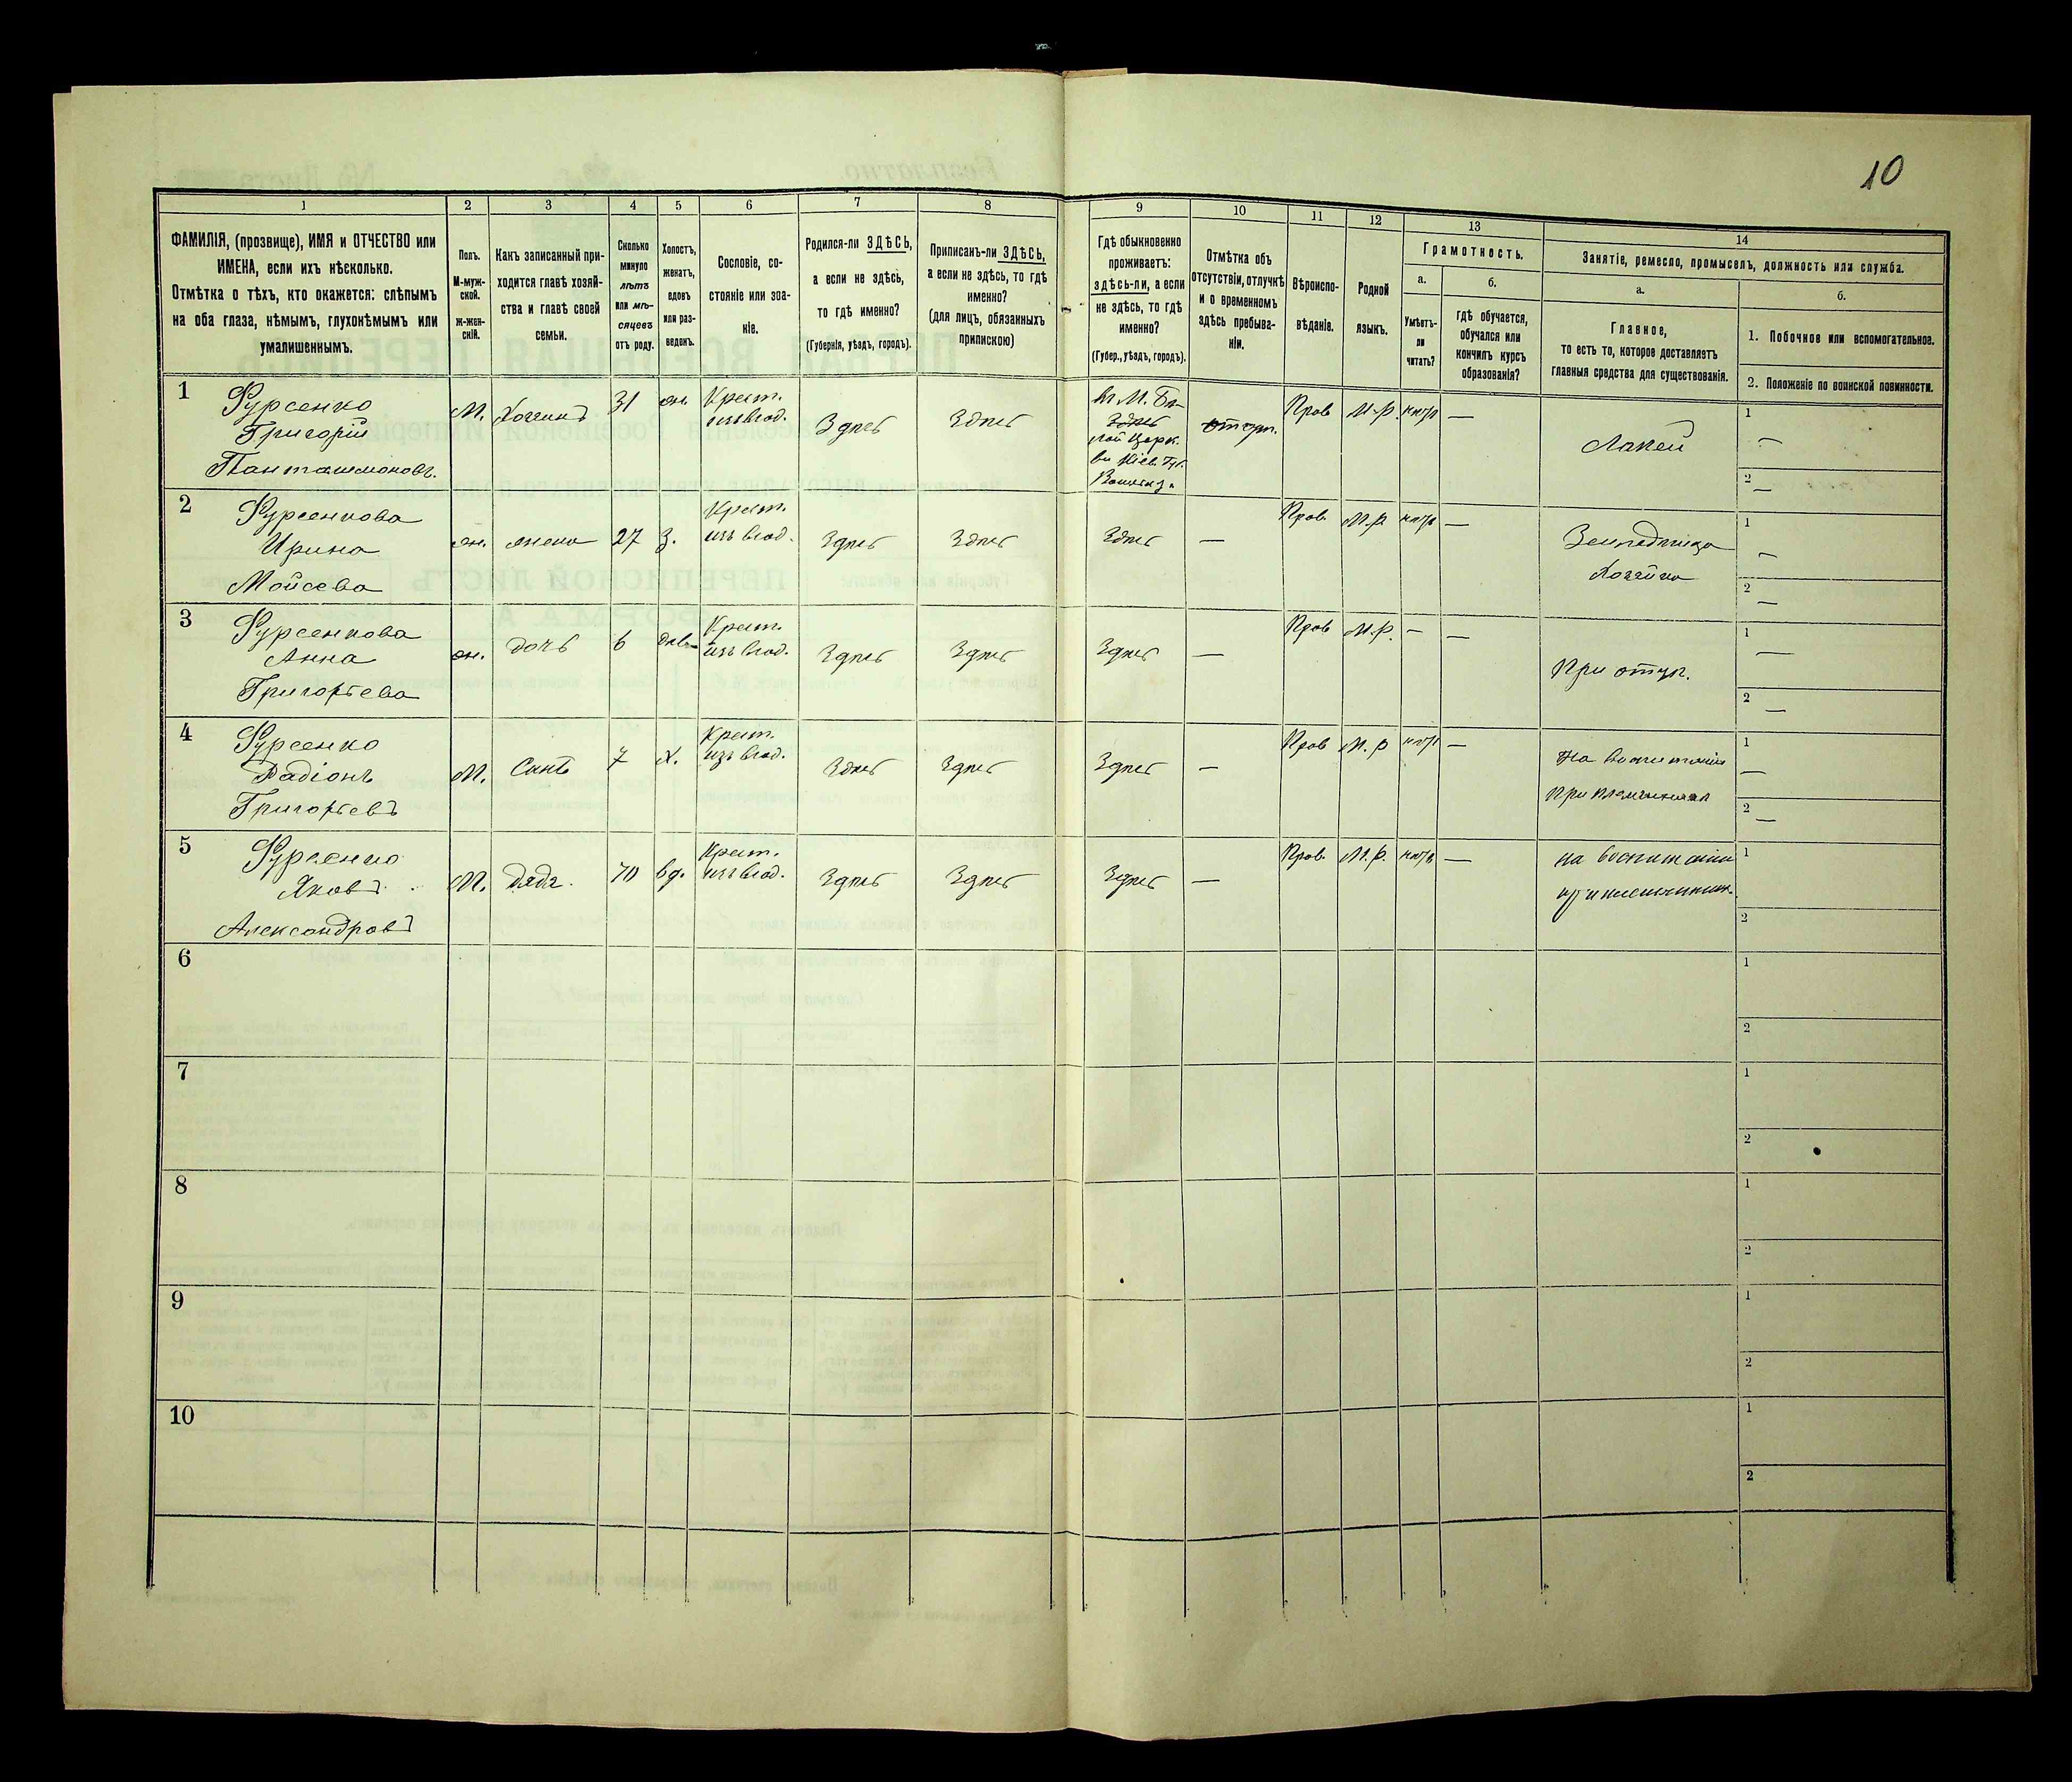 10
1
2
3
4
5
6
7
8
9
10
11
12
13
14
ФАМИЛІЯ, (прозвище), ИМЯ и ОТЧЕСТВО или
ИМЕНА, если ихъ нѣсколько.
Отмѣтка о тѣхъ, кто окажется: слѣпымъ
на оба глаза, нѣмымъ, глухонѣмымъ или
умалишеннымъ.
Полъ.
М-муж-
ской.
ж-жен-
скій.
Какъ записанный при-
ходится главѣ хозяй-
ства и главѣ своей
семьи.
Сколько
минуло
лѣтъ
или мѣ-
сяцевъ
отъ роду.
Холостъ,
женатъ,
вдовъ
или раз-
веденъ.
Сословіе, со-
стояніе или зва-
ніе.
Родился-ли ЗДѢСЬ,
а если не здѣсь,
то гдѣ именно?
(Губернія, уѣздъ, городъ).
Приписанъ-ли ЗДѢСЬ,
а если не здѣсь, то гдѣ
именно?
(для лицъ, обязанныхъ
припискою)
Гдѣ обыкновенно
проживаетъ:
здѣсь-ли, а если
не здѣсь, то гдѣ
именно?
(Губер., уѣздъ, городъ).
Отмѣтка объ
отсутствіи, отлучкѣ
и о временномъ
здѣсь пребыва-
ніи.
Вѣроиспо-
вѣданіе.
Родной
языкъ.
Грамотность.
а.
Умѣетъ-
ли
читать?
б.
гдѣ обучается,
обучался или
кончилъ курсъ
образованія?
Занятіе, ремесло, промыселъ, должность или служба.
а.
Главное,
то есть то, которое доставляетъ
главныя средства для существованія.
б.
1. Побочное или вспомогательное.
2. Положеніе по воинской повинности.
1
Фурсенко
Григорій
Пантелимоновъ.
М.
Хозяинъ
31
жн.
Крест.
изъ влад.
Здѣсь
Здѣсь
Здѣсь
отсут.
Прав
М.р.
нѣтъ
—
Лакей
1 —
2 —
2
Фурсенкова
Ирина
Мойсева
жн.
жена
27
З.
Крест.
изъ влад.
Здѣсь
Здѣсь
Здѣсь
—
Прав.
М.р
нѣтъ
—
Хозяйка
1 —
2 —
3
Фурсенкова
Анна
Григорьева
жн.
дочь
6
дѣв.
Крест.
изъ влад.
Здѣсь
Здѣсь
Здѣсь
—
Прав
М.р.
—
—
При отцѣ.
1 —
2 —
4
Фурсенко
Радіонъ
Григорьевъ
М.
Сынъ
7
Х.
Крест.
изъ влад.
Здѣсь
Здѣсь
Здѣсь
—
Прав
М.р
нѣтъ
—
На воспитаніи
1 —
2 —
5
Фурсенко
Яковъ
Александровъ
М.
Дядя.
70
вд.
Крест.
изъ влад.
Здѣсь
Здѣсь
Здѣсь
—
Прав.
М.р.
нѣтъ
—
на воспитаніи
1
2
6
1
2
7
1
2
8
1
2
9
1
2
10
1
2